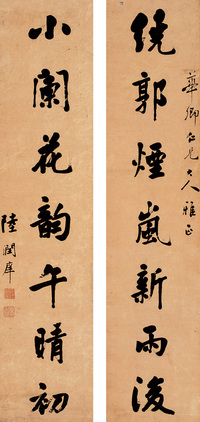 華卿仁兄大人雅正
繞郭煙嵐新雨後
小闌花韵午晴初
陸潤庠